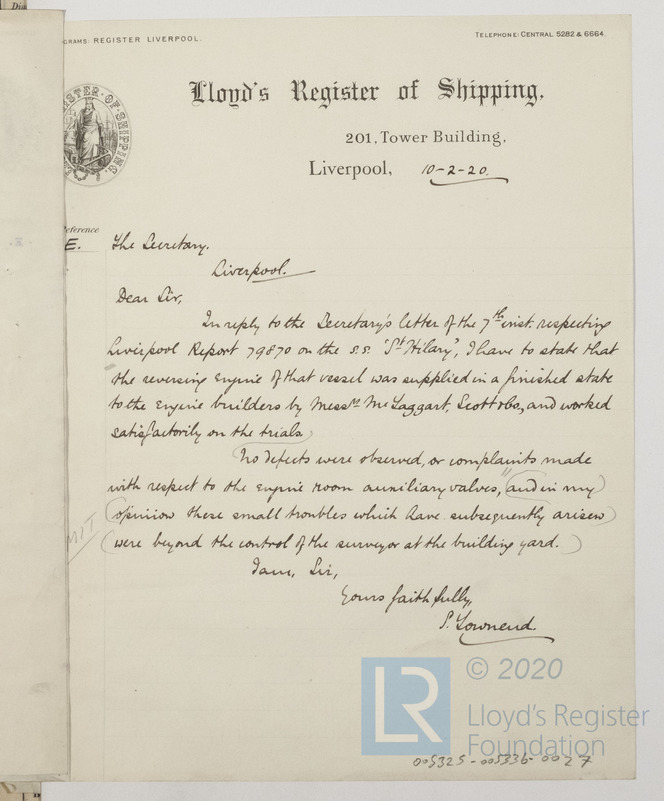 GRAMS: REGISTER LIVERPOOL.
TELEPHONE: CENTRAL 5282 & 6664.
Lloyd's Register of Shipping,
201, Tower Building,
Liverpool, 10-2-20.
eference
E.
The Secretary.
Liverpool.
Dear Sir,
In reply to the Secretary's letter of the 7th inst. respecting
Liverpool Report 79870 on the s.s. "St Hilary", I have to state that
the reversing engine of that vessel was supplied in a finished state
to the engine builders by Messrs McTaggart, Scott & Co, and worked
satisfactorily on the trials.
No defects were observed, or complaints made
with respect to the engine room auxiliary valves, and in my
opinion these small troubles which have subsequently arisen
were beyond the control of the surveyor at the building yard.
I am, Sir,
Yours faithfully,
S. Townend.
LR © 2020
Lloyd's Register
Foundation
005325-005336-0027